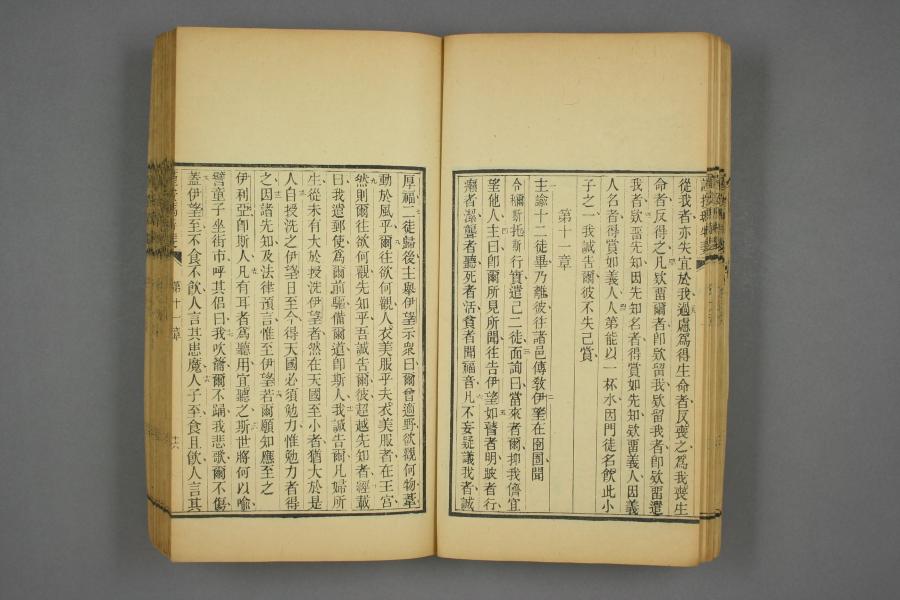 從我者亦失宜於我過慮爲得生命者反喪之爲我喪生
命者反得之凡欵畱爾者卽欵留我欵留我者卽欵畱遣
我者欵畱先知因先知名者得賞如先知欵畱義人因義
人名者得賞如義人人第能以一杯水因門徒名飮此小
子之一我誠吿爾彼不失己賞
第十一章
主諭十二徒畢乃離彼往諸邑傳敎伊望在囹圄聞
今彌斯托斯行實遣己二徒面詢曰當來者爾抑我儕宜
望他人主曰卽爾所見所聞往吿伊望如瞽者明跛者行
癩者潔聾者聽死者活貧者聞福音凡不妄疑議我者誠
厚福二徒歸後主舉伊望示衆曰爾曾適野欲觀何物葦
動於風乎爾往欲何觀人衣美服乎夫衣美服者在王宮
然則爾往欲何觀先知乎吾誠吿爾彼超越先知者經載
曰我遣郵使爲爾前驅備爾道卽斯人我誠吿爾凡婦所
生從未有大於授洗伊望者然在天國至小者猶大於是
人自授洗之伊望日至今得天國必須勉力惟勉力者得
之因諸先知及法律預言惟至伊望若爾願知應至之
伊利亞卽斯人凡有耳者爲聽用宜聽之斯世將何以喩
譬童子坐街市呼其侶曰我吹籥爾不踊我悲歌爾不傷
蓋伊望至不食不飮人言其患魔人子至食且飮人言其
第十一章